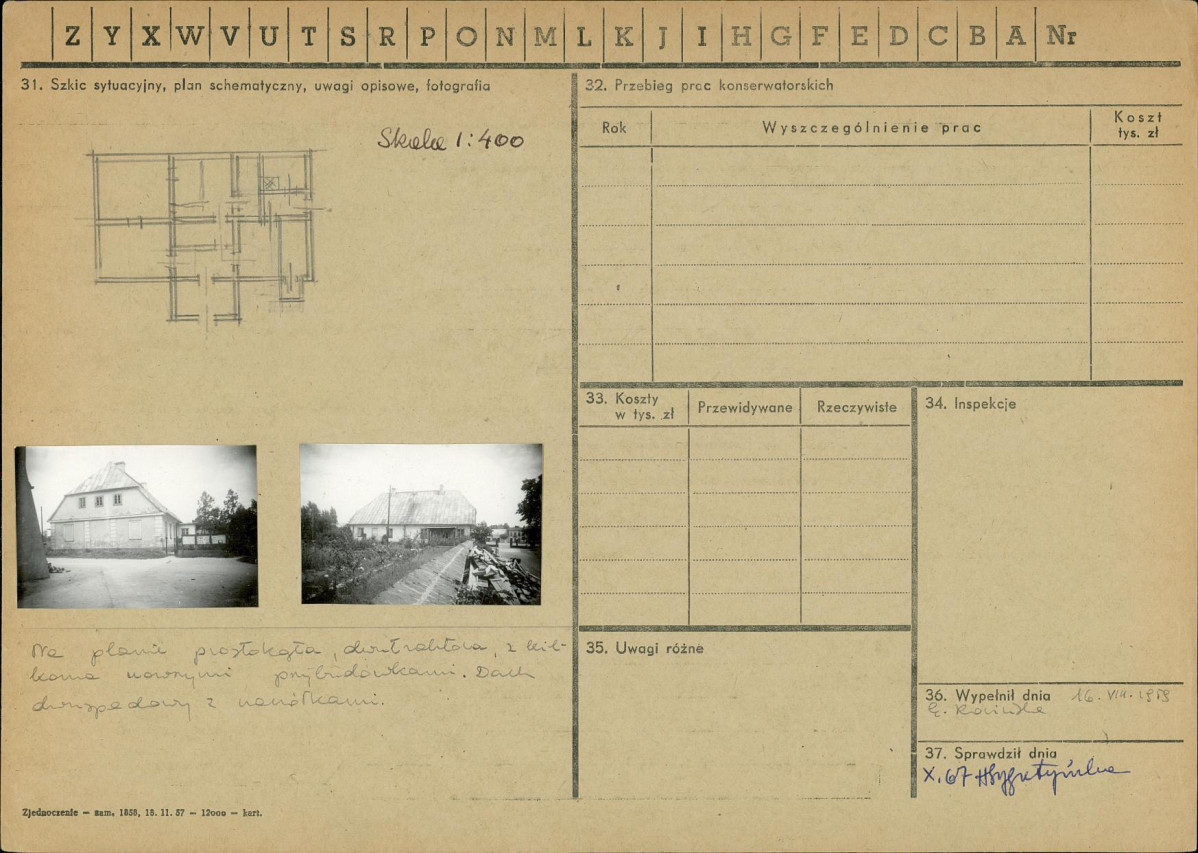 Z Y X W V U T S R P O N M L K J I H G F E D C B A Nr
31. Szkic sytuacyjny, plan schematyczny, uwagi opisowe, fotografia
Skala 1:400
Na planie prostokąta, dwutraktowa, z kil-
koma nowymi przybudówkami. Dach
dwuspadowy z naczółkami.
Zjednoczenie — zam. 1858, 18. 11. 57 — 12000 — kart.
32. Przebieg prac konserwatorskich
Rok Wyszczególnienie prac Koszt
tys. zł
33. Koszty
w tys. zł
Przewidywane Rzeczywiste
34. Inspekcje
35. Uwagi różne
36. Wypełnił dnia 16. VIII. 1959
37. Sprawdził dnia
X. 67